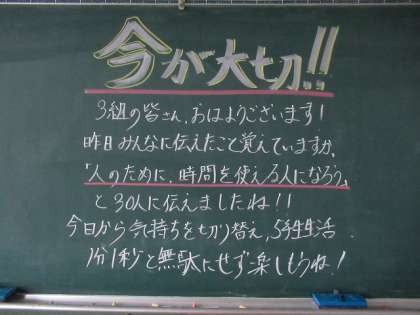 今が大切!!
3組の皆さん、おはようございます!
昨日みんなに伝えたこと覚えていますか。
「人のために、時間を使える人になろう」
と30人に伝えましたね!!
今日から気持ちを切り替え、5年生活
1分1秒と無駄にせず楽しもうね!